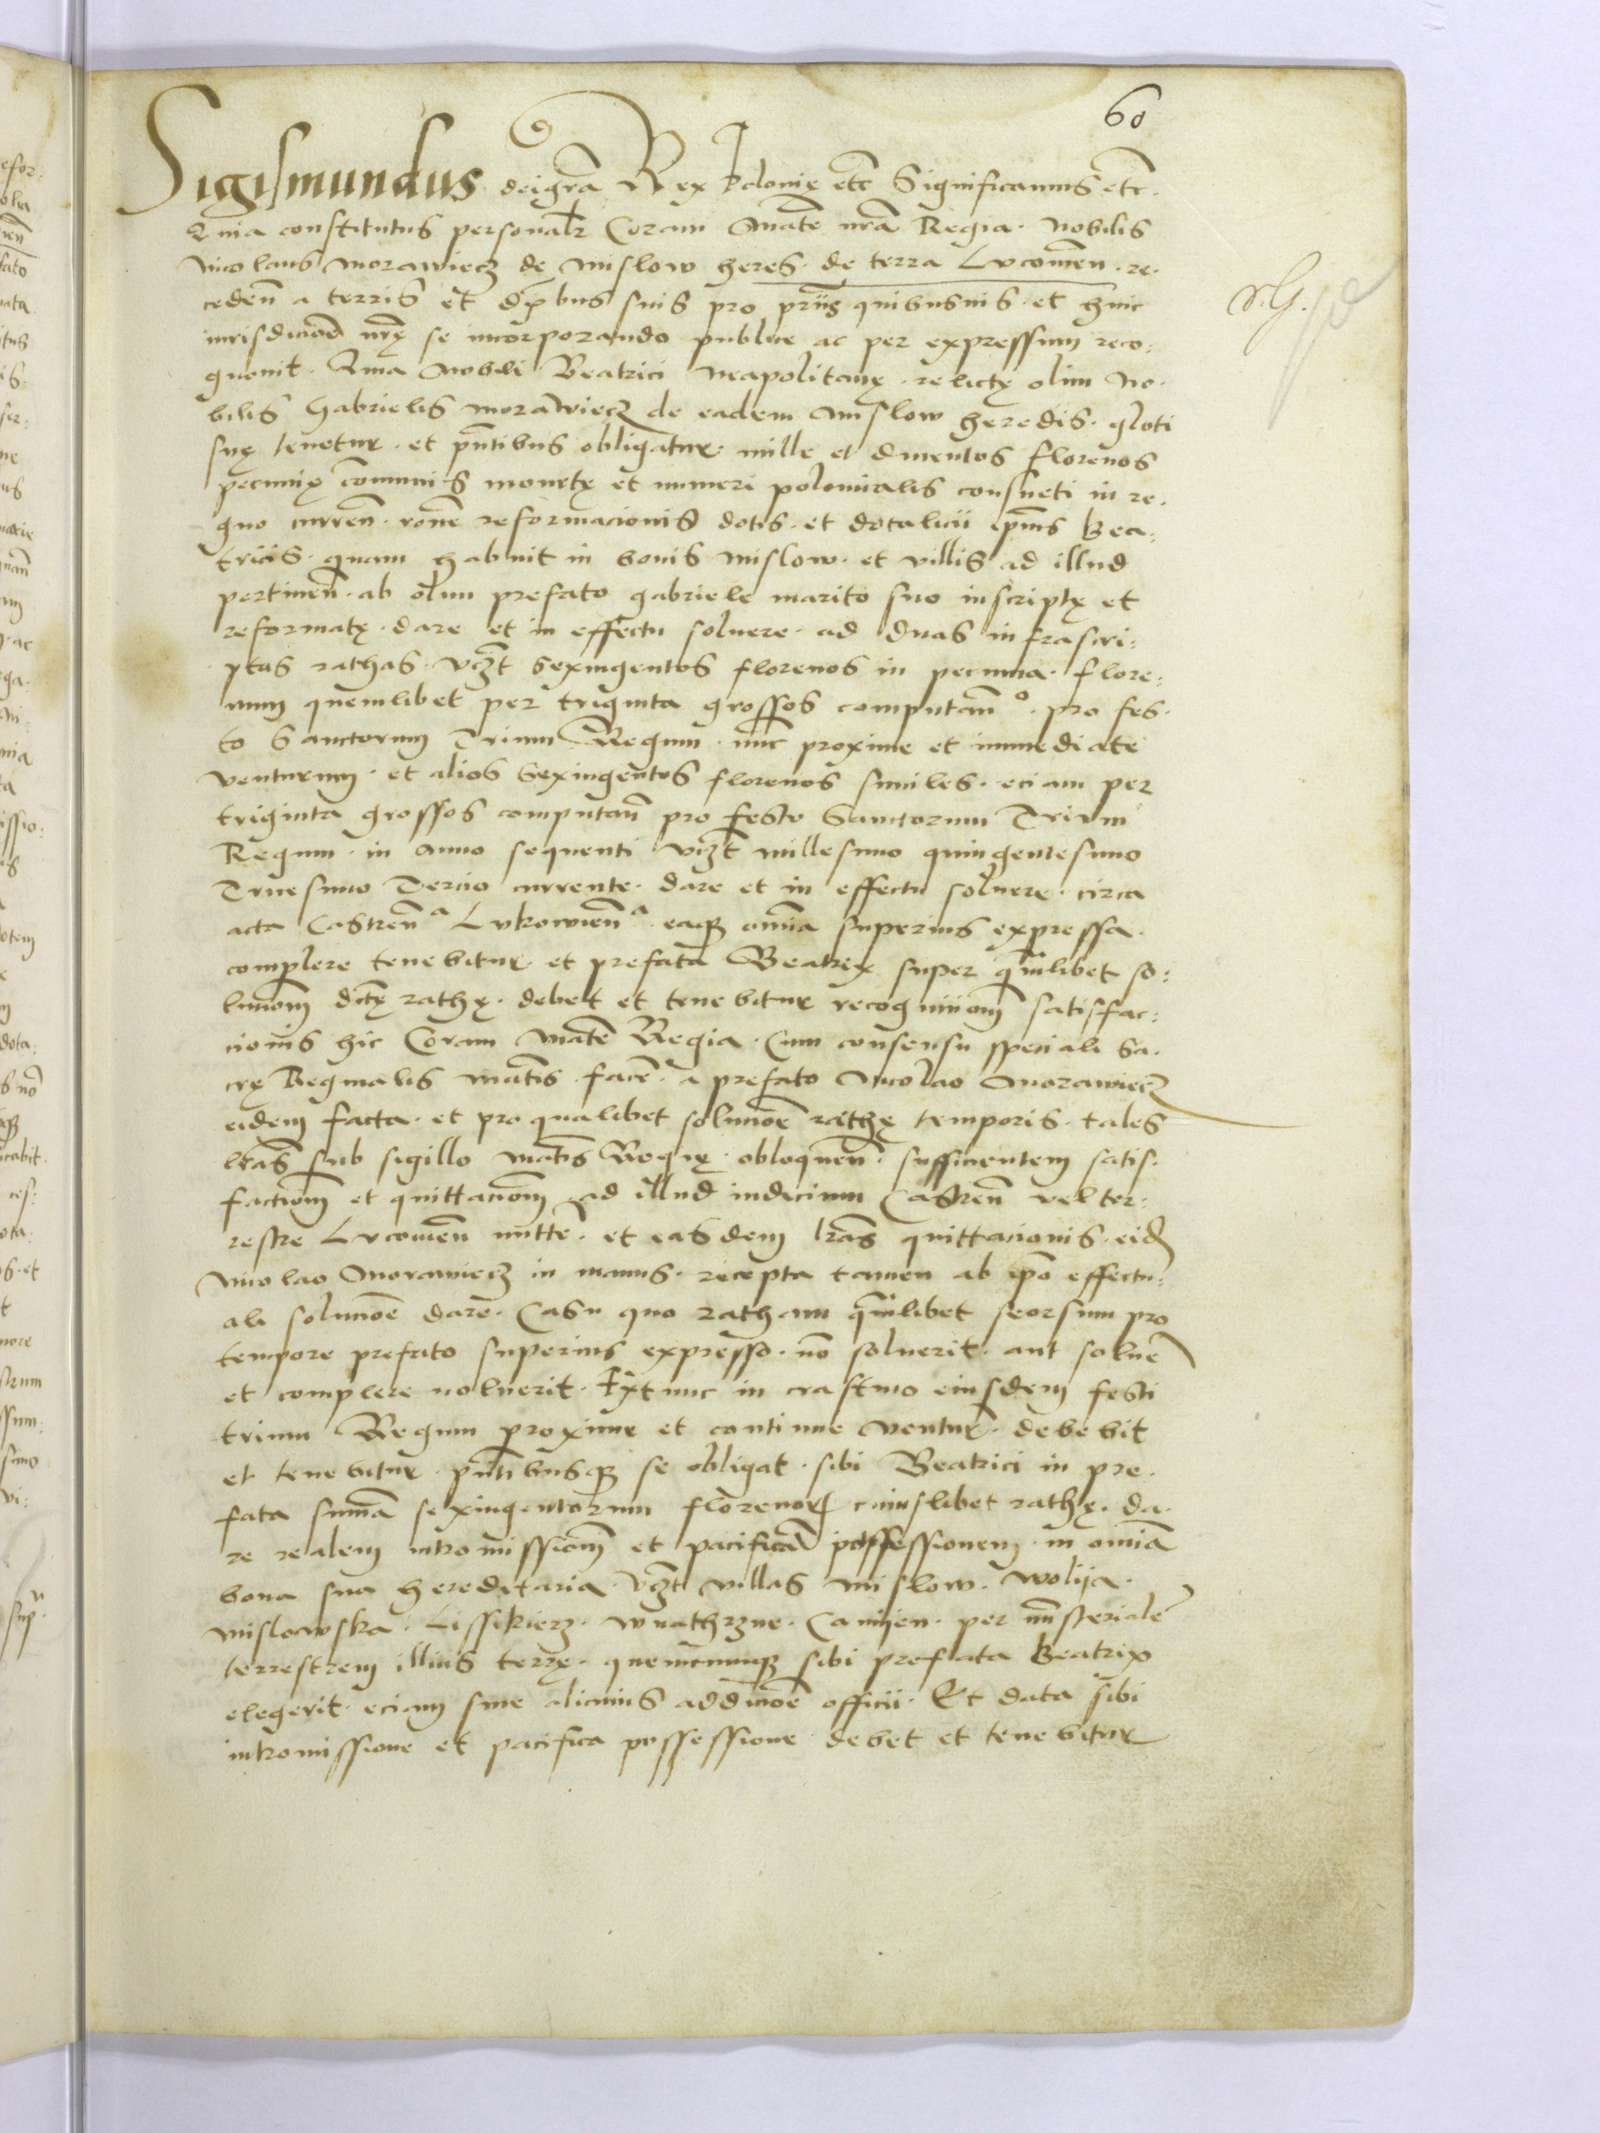 60
Sigismundus deigrā Rex Polonię etc Significamus etc.
Quia constitutus personalr Coram Mate nrā Regia. Nobilis
Nicolaus Morawiecz de Mislow heres. de terra Lucowień. re.
cedeñ a terris et suis pro priis quibusuis et huic
S.G.
nrę se incorporando publice ac per expressum reco:
gnouit. Quia Nobili Beatrici Neapolitanę. relictę olim No.
bilis Gabrielis Morawiecz de eadem Mislow heredis.
suę tenetur. et pntibus obligatur. mille et ducentos florenos
pecunię cōmunis monetę et numeri polonicalis consueti in re.
gno curreñ. rone reformacionis dotis. et dotalicii ipius Bea:
tricis. quam habuit in bonis Mislow. et villis ad illud
pertineñ. ab olim prefato gabriele marito suo inscriptę et
reformatę. dare et in effectu soluere. ad duas infrascri:
ptas rathas. vzt sexingentos florenos in pecunia. flore:
num quemlibet per triginta grossos computañº. pro fes.
to Sanctorum Trium Regum. nūc proxime et immediate
venturum. et alios Sexingentos florenos similes. eciam per
triginta grossos computañ pro festo Sanctorum Trium
Regum. in anno sequenti vzt millesimo quingentesimo
Tricesimo Tercio currente. dare et in effectu soluere. circa
acta Castreñª Lukowieñª. eaque omīa superius expressa.
complere tenebitur. et prefata Beatrix super qūmlibet so:
lucionm dictę rathę. debet et tenebitur recognicionm satisfac:
cionis hic Coram Mate Regia. Cum consensu speciali Sa.
crę Reginalis Matis facē. a prefato Nicolao Morawiecz
eidem facta. et pro qualibet solucioē rathę temporis. tales
lrās sub sigillo Matis Regię. obloqueñ. sufficientem satis.
factionm et quittacionm ad illud iudicium Castreñ vel ter:
restre Lucowieñ mitte. et easdem lrās quittacionis. eidē
Nicolao Morawiecz in manus. recepta tamen ab ipō effectu:
ali solucioē dare. Casu quo ratham qūmlibet seorsum pro
tempore prefato superius expresso. nō soluerit. aut soluē
et complere noluerit. Extunc in crastino eiusdem festi
trium Regum proxime et continue ventur. debebit
et tenebitur. pntibusque se obligat. sibi Beatrici in pre.
fata sumā sexingentorum florenorū cuiuslibet rathę. da.
re realem intromissionm et pacificā possessionem. in omīa
bona sua hereditaria. vzt villas Mislow. Wolija.
Mislowska. Lissikierz. Wnathrzne. Camijen. per misterialē
terrestrem illius terrę. quemcumque sibi prefata Beatrix
elegerit. eciam sine alicuius addicioē officii. Et data sibi
intromissione et pacifica possessione debet et tenebitur